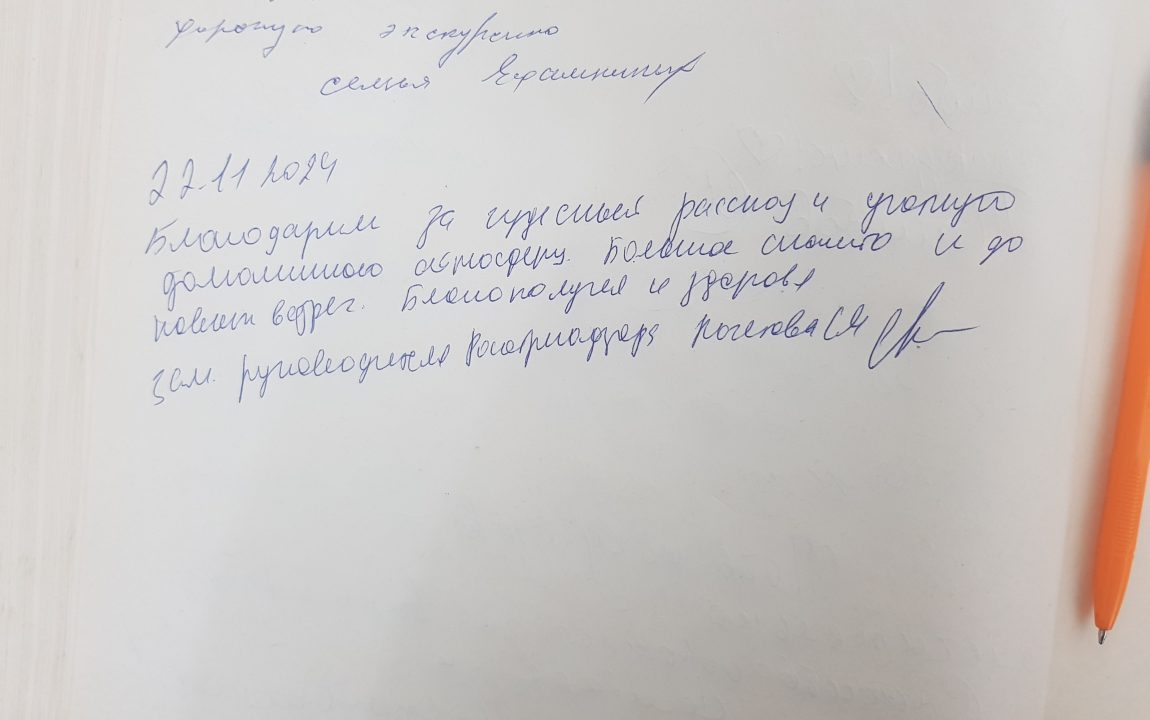 хорошую экскурсию
семья
22.11 2024
Благодарим за чудесный рассказ и уютную
домашнюю атмосферу. Большое спасибо и до
новых встреч. Благополучия и здоровья
зам. руководителя Росаттестация СМ